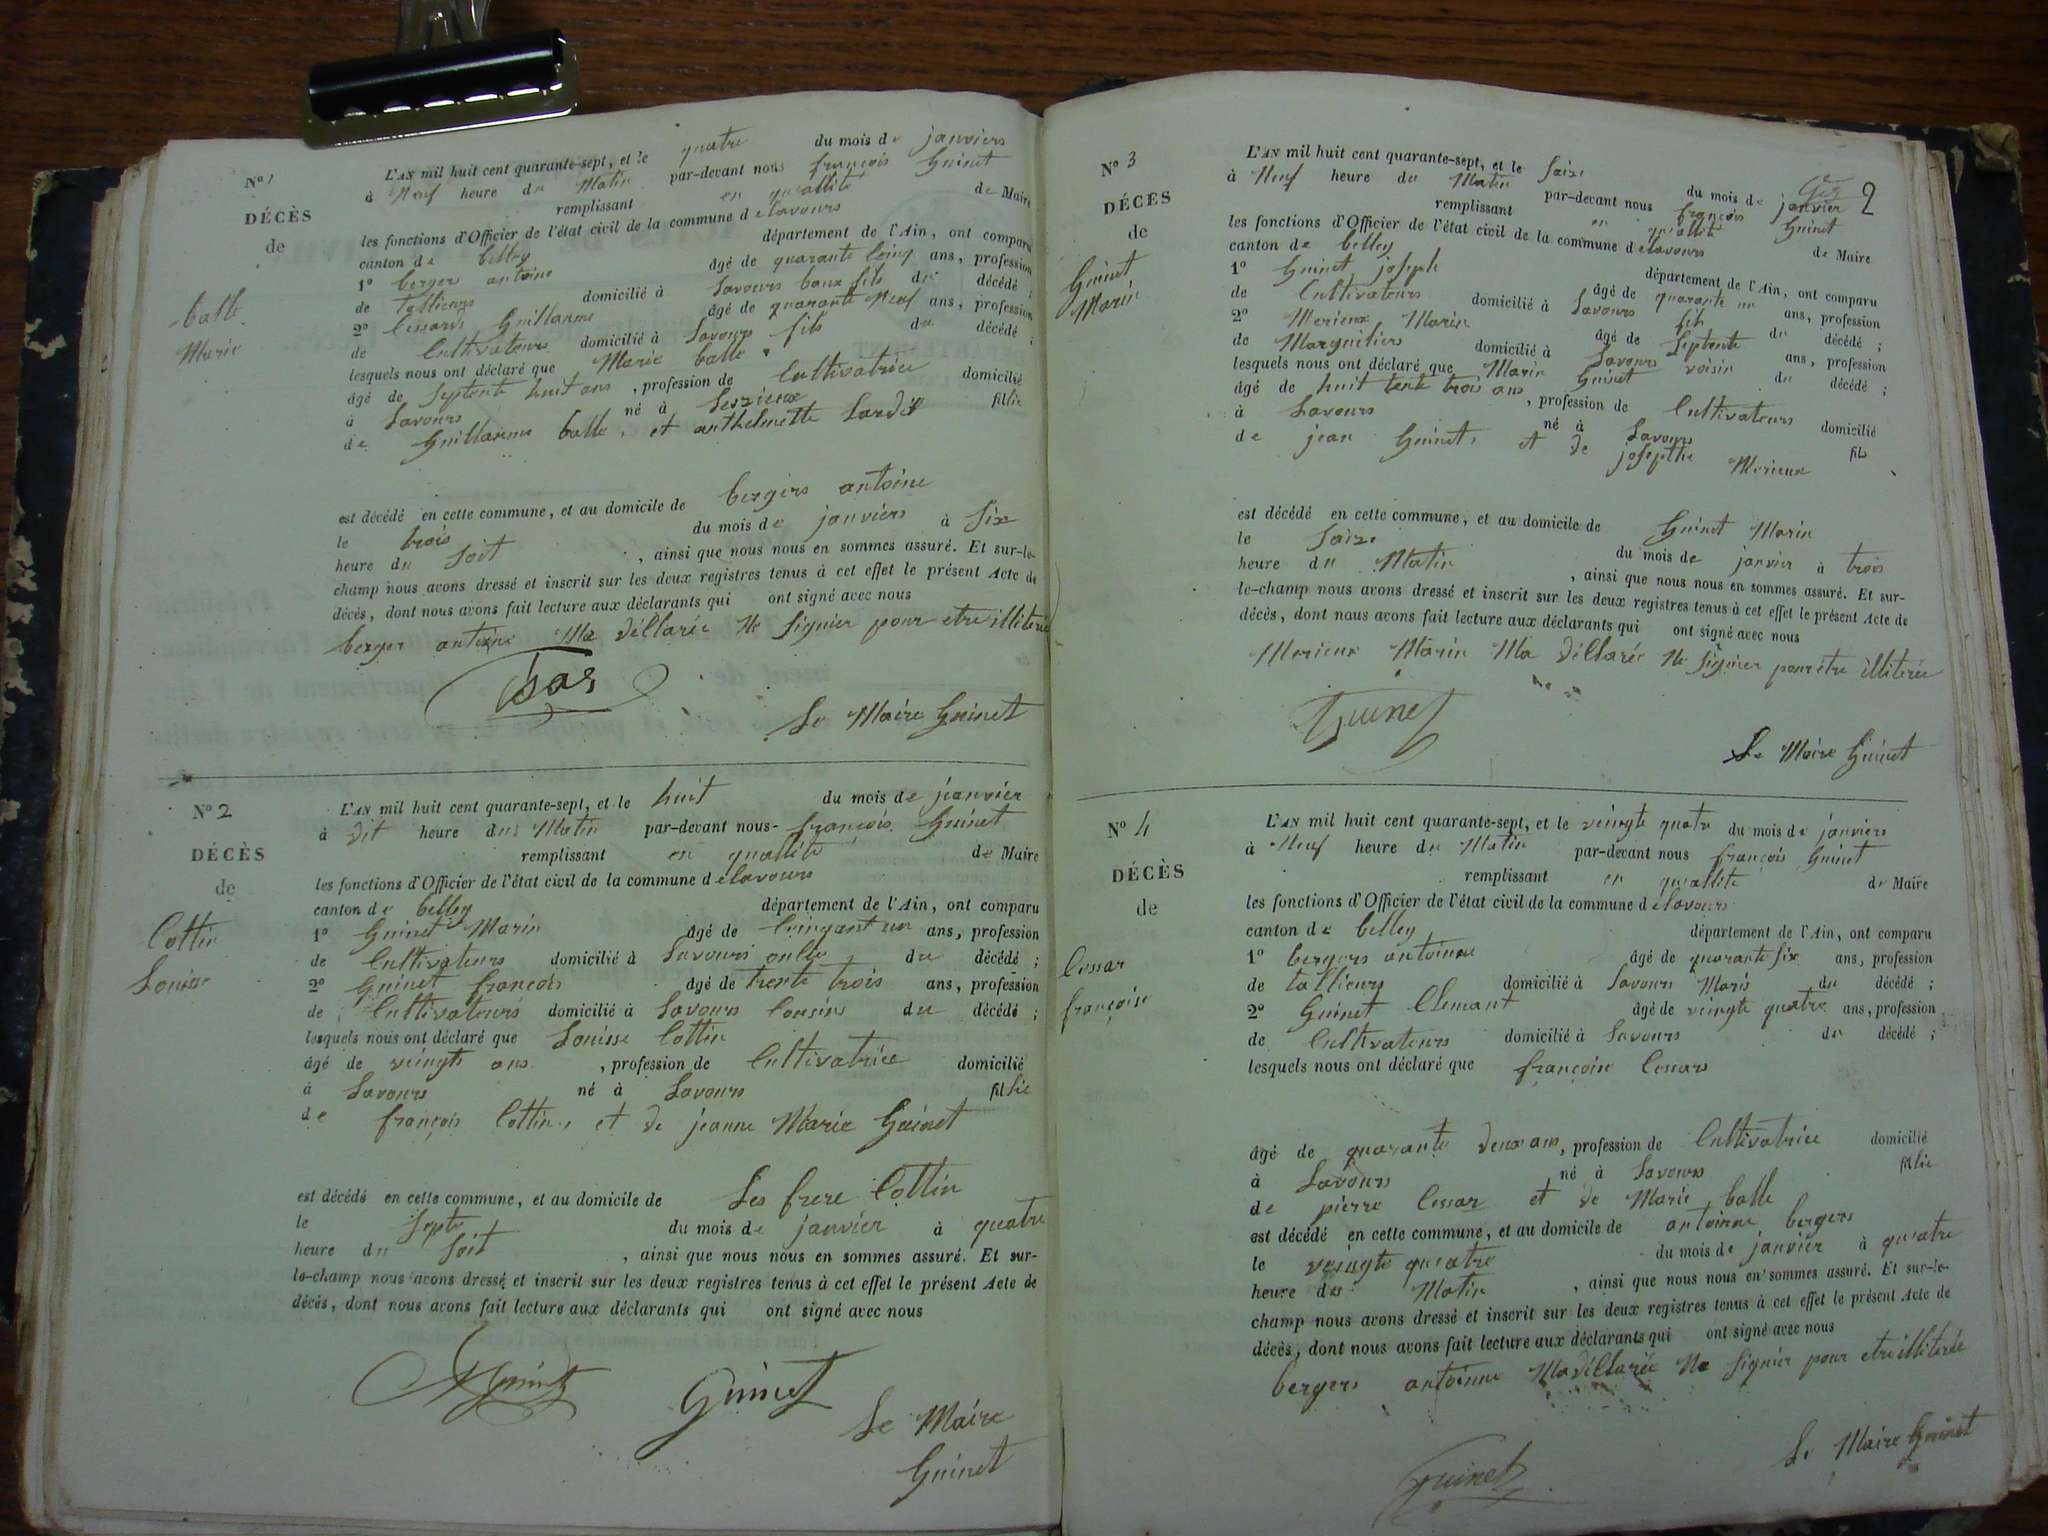 N° 1
DÉCÈS
de
balle
Marie
L'AN mil huit cent quarante-sept, et le quatre du mois de janviers
à Neuf heure du Matin par-devant nous françois Guinet
remplissant en quallité de Maire
les fonctions d'Officier de l'état civil de la commune de Lavours
canton de belley département de l'Ain, ont comparu
1° berger antoine âgé de quarante Cinq ans, profession
de tallieurs domicilié à Lavours baux fils du décédé ;
2° Cessards Guillaume âgé de quarante Neuf ans, profession
de Cultivateurs domicilié à Lavours fils du décédé ;
lesquels nous ont déclaré que Marie balle
âgé de septente huit ans , profession de Cultivatrice domicilié
à Lavours né à fillie
de Guillaume balle, et anthelmette
est décédé en cette commune, et au domicile de bergers antoine
le trois du mois de janviers à Six
heure du Soit , ainsi que nous nous en sommes assuré. Et sur-le-
champ nous avons dressé et inscrit sur les deux registres tenus à cet effet le présent Acte de
décès, dont nous avons fait lecture aux déclarants qui ont signé avec nous
berger antoine Ma déllarée Ne Signier pour etre illiterée
Le Maire Guinet
N° 2
DÉCÈS
de
Cottin
Louise
L'AN mil huit cent quarante-sept, et le huit du mois de janvier
à dit heure du Matin par-devant nous françois Guinet
remplissant en quallité de Maire
les fonctions d'Officier de l'état civil de la commune de Lavours
canton de belley département de l'Ain, ont comparu
1° Guinet Marin âgé de Cinqant un ans, profession
de Cultivateurs domicilié à Lavours onlle du décédé ;
2° Guinet françois âgé de trente trois ans, profession
de Cultivateurs domicilié à Lavours Cousins du décédé ;
lesquels nous ont déclaré que Louisse Cottin
âgé de veingts ans , profession de Cultivatrice domicilié
à Lavours né à Lavours fillie
de françois Cottin, et de jeanne Marie Guinet
est décédé en cette commune, et au domicile de Les frere Cottin
le Septe du mois de janvier à quatre
heure du Soit , ainsi que nous nous en sommes assuré. Et sur-
le-champ nous avons dressé et inscrit sur les deux registres tenus à cet effet le présent Acte de
décès, dont nous avons fait lecture aux déclarants qui ont signé avec nous
Guinet
Le Maire
Guinet
2
N° 3
DÉCÈS
de
Guinet
Marin
L'AN mil huit cent quarante-sept, et le Saize du mois de janvier
à Neuf heure du Matin par-devant nous françois Guinet
remplissant en quallité de Maire
les fonctions d'Officier de l'état civil de la commune de Lavours
canton de belley département de l'Ain, ont comparu
1° Guinet joseph âgé de quarante un ans, profession
de Cultivateurs domicilié à Lavours fils du décédé ;
2° Merieux Marin âgé de Septente ans, profession
de Margnitiers domicilié à Lavours voisin du décédé ;
lesquels nous ont déclaré que Marin Guinet
âgé de huit tente trois ans , profession de Cultivateurs domicilié
à Lavours né à Lavours fils
de jean Guinet, et de josepthe Merieux
est décédé en cette commune, et au domicile de Guinet Marin
le Saize du mois de janvier à trois
heure du Matin , ainsi que nous nous en sommes assuré. Et sur-
le-champ nous avons dressé et inscrit sur les deux registres tenus à cet effet le présent Acte de
décès, dont nous avons fait lecture aux déclarants qui ont signé avec nous
Merieux Marin Ma déllarée Ne Signier pour etre illiterée
Guinet
Le Maire Guinet
N° 4
DÉCÈS
de
Cessar
françoise
L'AN mil huit cent quarante-sept, et le veingte quatre du mois de janviers
à Neuf heure du Matin par-devant nous françois Guinet
remplissant en quallité de Maire
les fonctions d'Officier de l'état civil de la commune de Lavours
canton de belley département de l'Ain, ont comparu
1° bergers antoinne âgé de quarante six ans, profession
de tallieurs domicilié à Lavours Maris du décédé ;
2° Guinet Clemant âgé de veingte quatre ans, profession
de Cultivateurs domicilié à Lavours du décédé ;
lesquels nous ont déclaré que françoise Cessars
âgé de quarante deux ans, profession de Cultivatrice domicilié
à Lavours né à Lavours fillie
de pierre Cessar et de Marie balle
est décédé en cette commune, et au domicile de antoinne bergers
le veingte quatre du mois de janvier à quatre
heure du Matin , ainsi que nous nous en sommes assuré. Et sur-le-
champ nous avons dressé et inscrit sur les deux registres tenus à cet effet le présent Acte de
décès, dont nous avons fait lecture aux déclarants qui ont signé avec nous
bergers antoinne Ma déllarée Ne Signier pour etre illiterée
Guinet
Le Maire Guinet